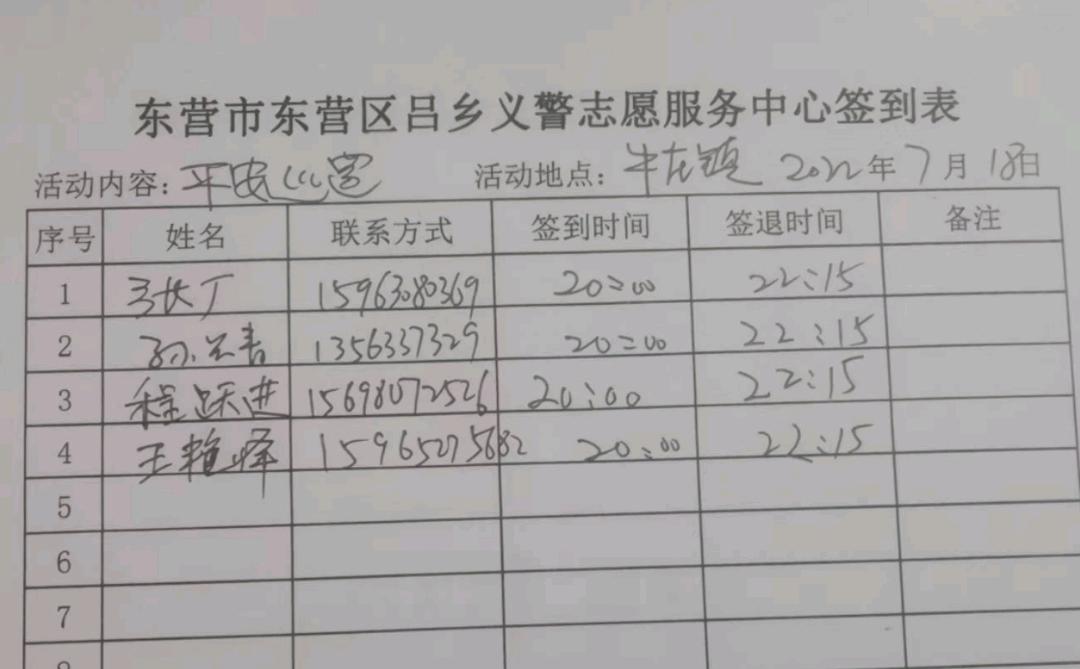 东营市东营区吕乡义警志愿服务中心签到表
活动内容: 平安巡逻 活动地点: 牛庄镇 2022年7月18日
序号 姓名 联系方式 签到时间 签退时间 备注
1 15963080369 20:00 22:15
2 1356337329 20:00 22:15
3 程跃进 15698072526 20:00 22:15
4 王艳峰 15965275682 20:00 22:15
5
6
7